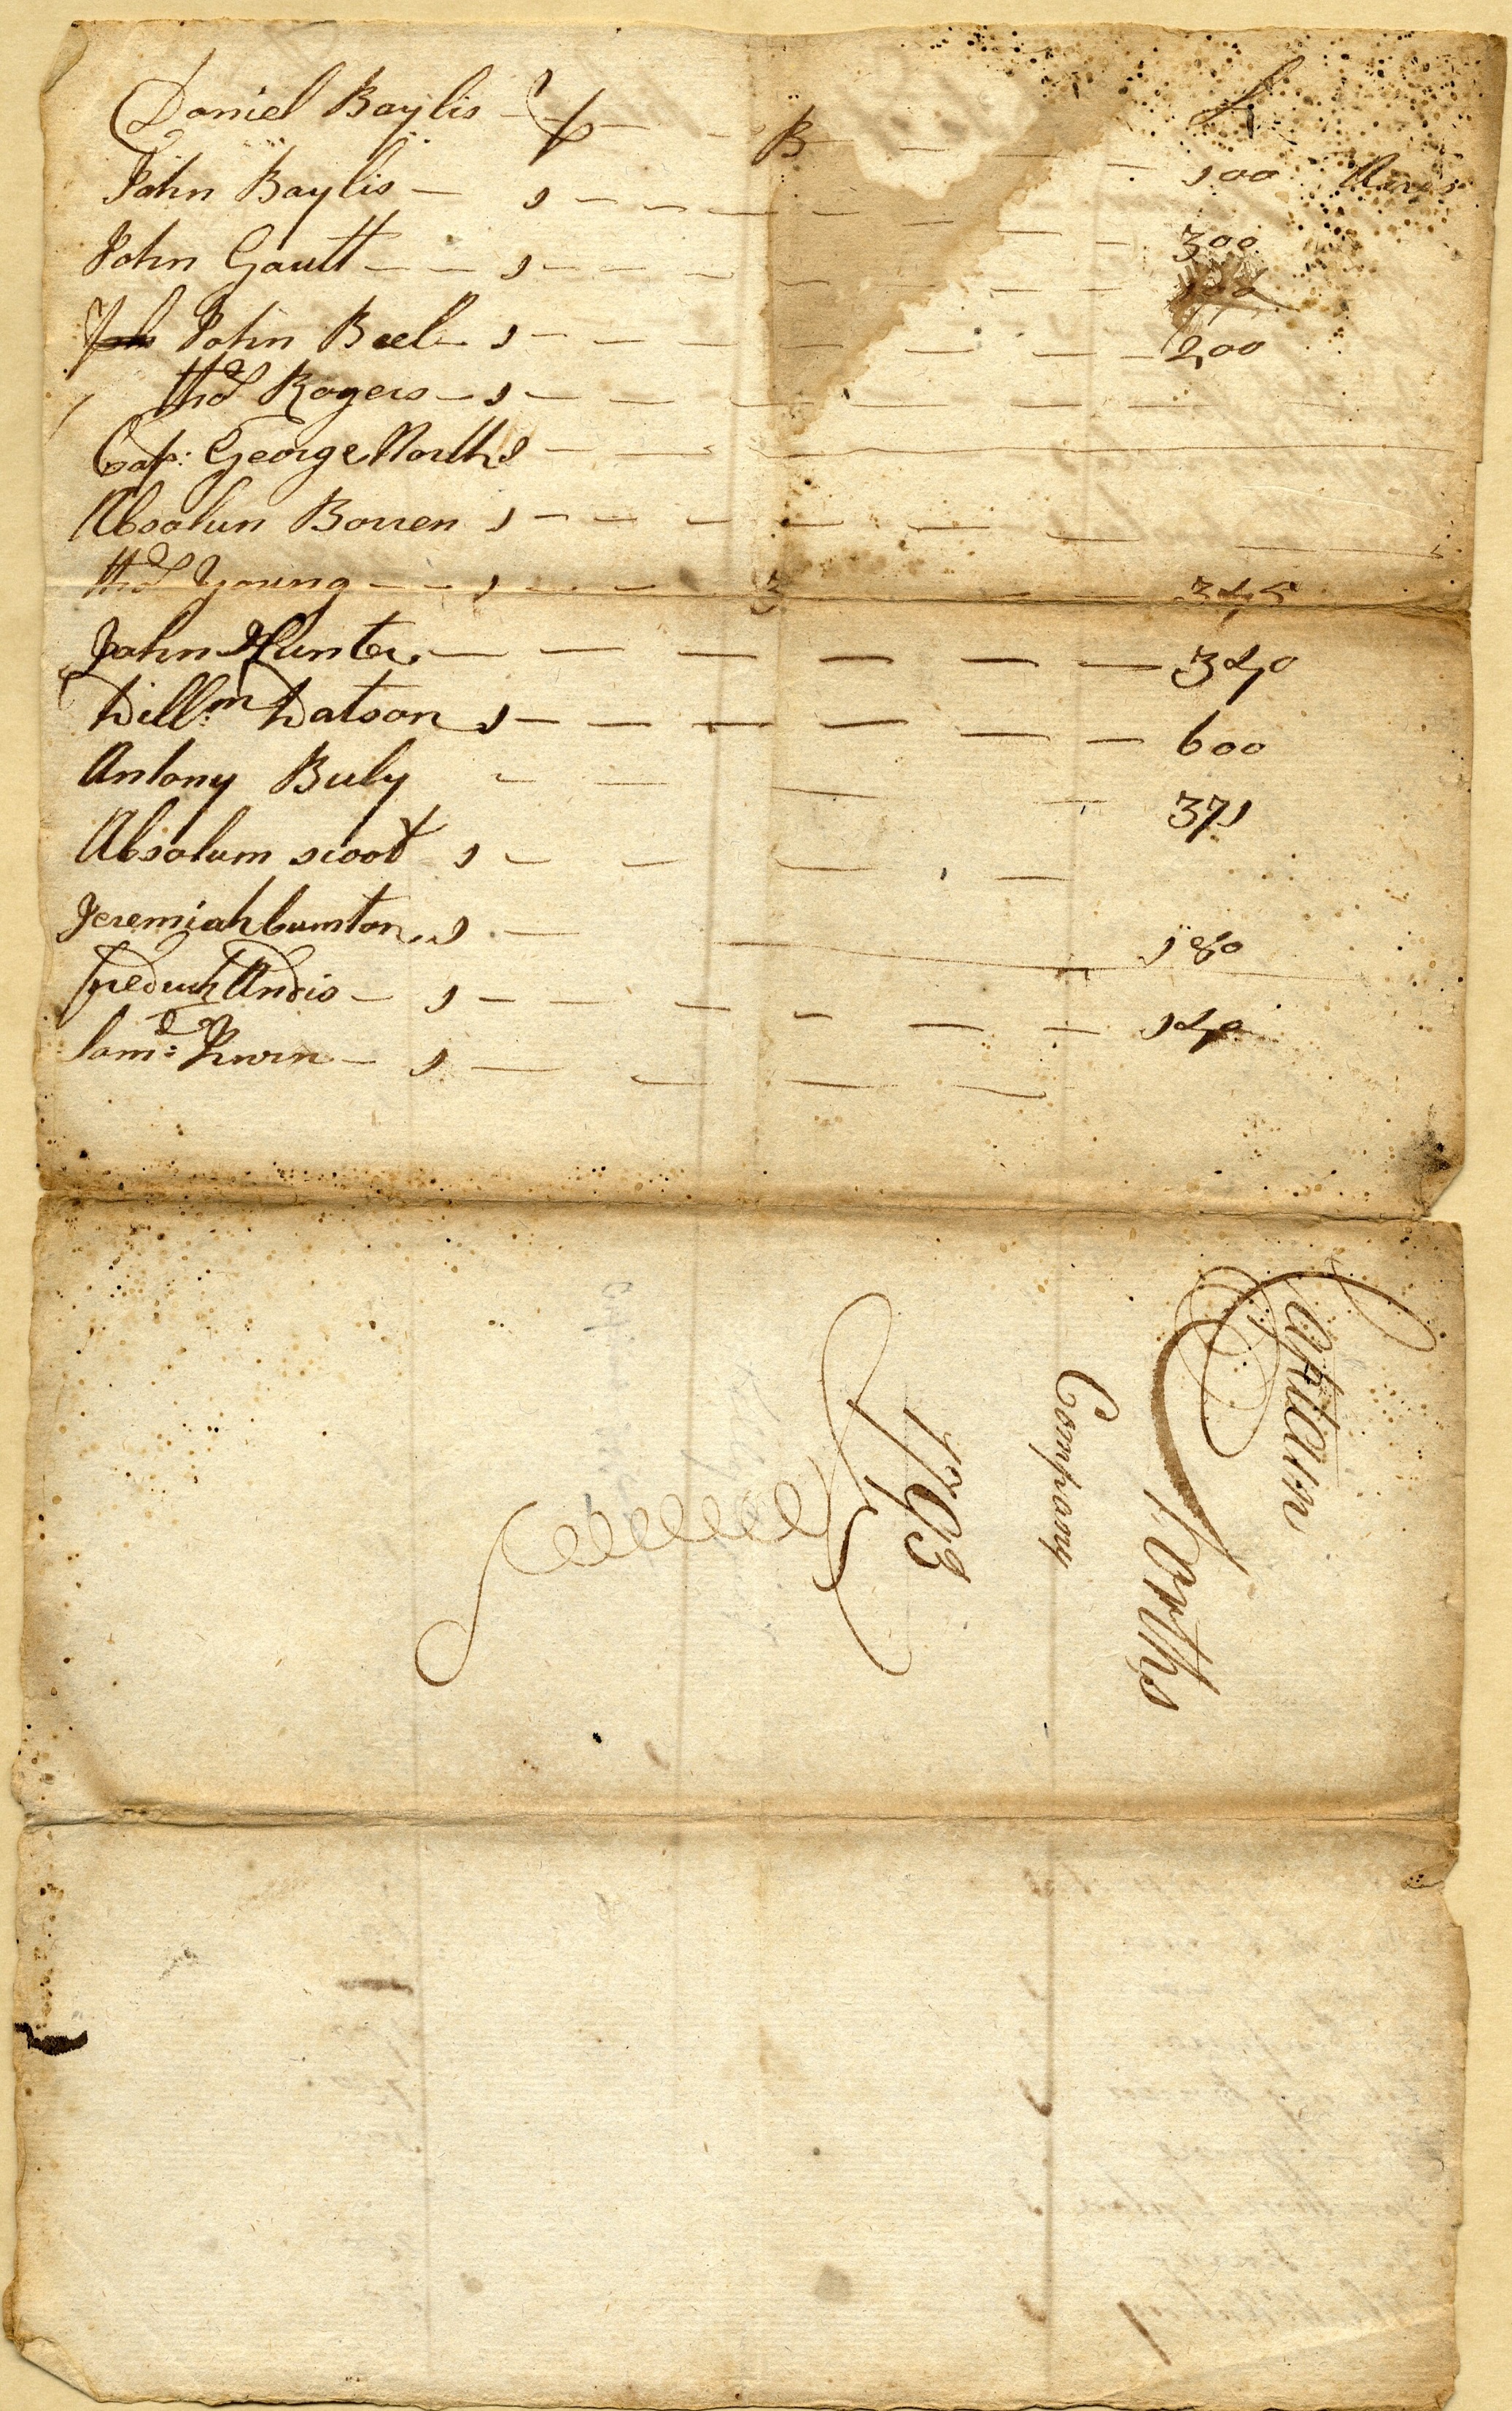 P B L
Daniel Baylis 100 Acres
John Baylis 1 300
John Gautt 1
John Beel 1 200
Tho:s Rogers 1
Cap: George North 1
Absolun Borren 1
Tho:s Young 1 3 345
John Hunter 340
Will:m Watson 1 600
Antony Buly 371
Absolum scoot 1
Jeremiah Cumton 1 180
Fredrick Andis 1 140
Sam:l Irwin 1
Captain
Norths
Company
1793